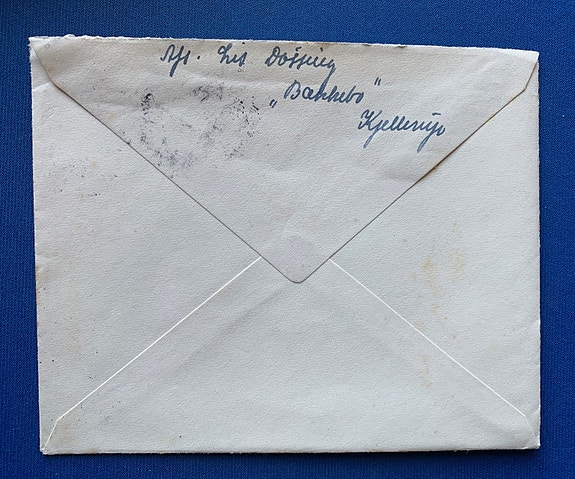 Afs. Lis Døssing
„Bakkebo"
Kjellerup